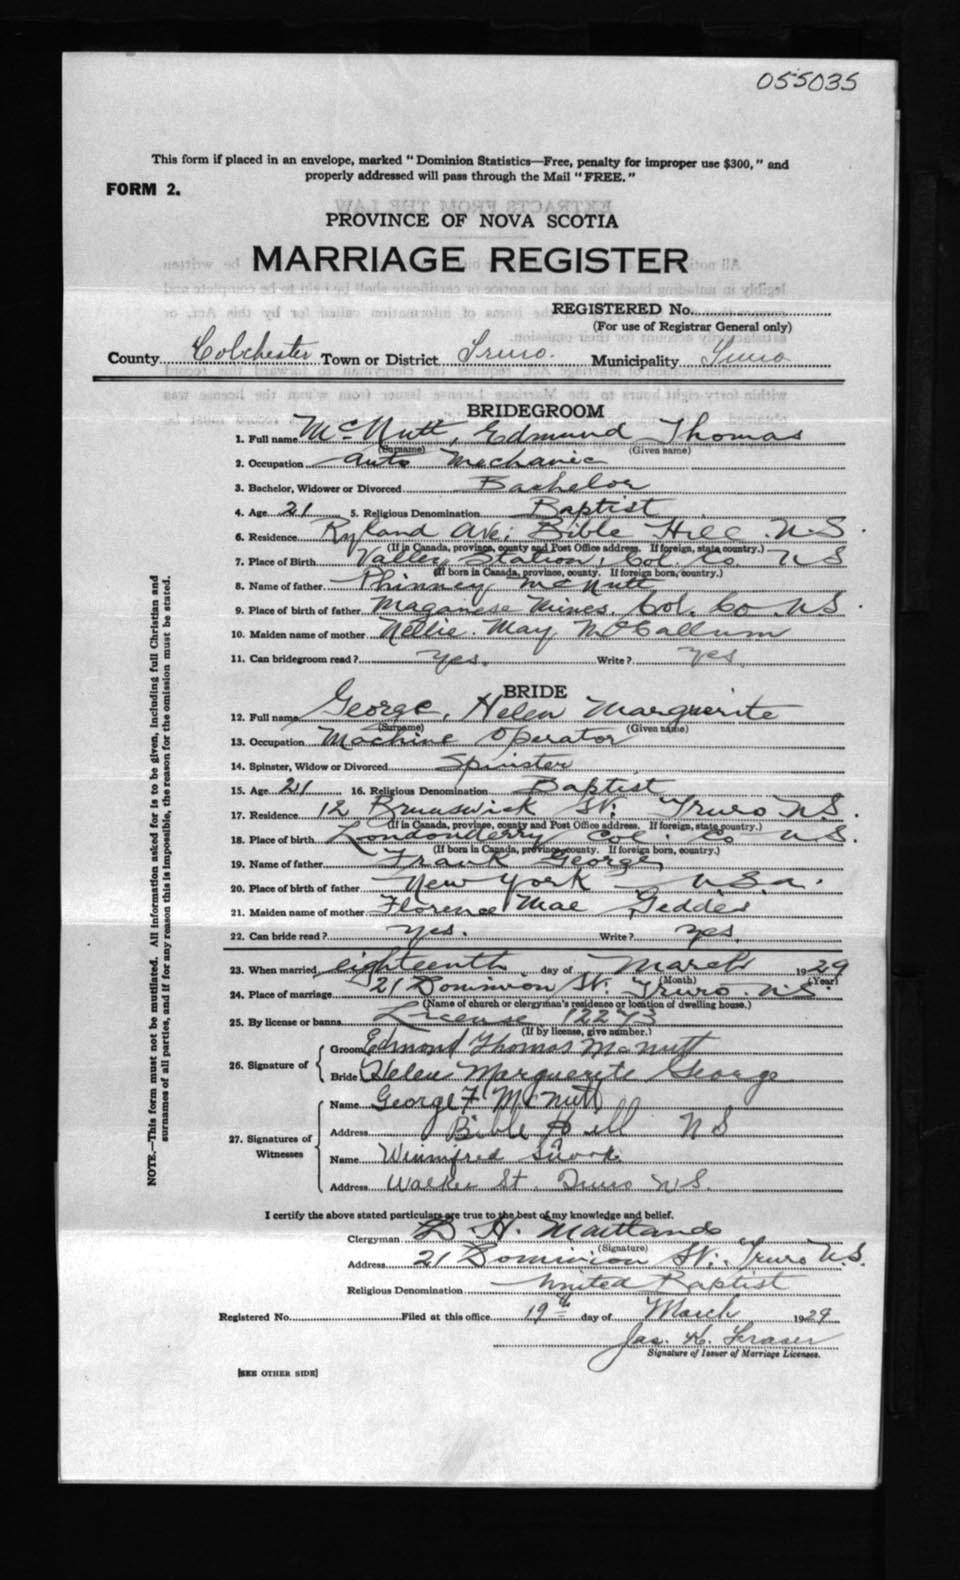 055035
This form if placed in an envelope, marked "Dominion Statistics—Free, penalty for improper use $300," and
properly addressed will pass through the Mail "FREE."
FORM 2.
PROVINCE OF NOVA SCOTIA
MARRIAGE REGISTER
REGISTERED No.
(For use of Registrar General only)
County Colchester Town or District Truro. Municipality Truro
BRIDEGROOM
1. Full name McNutt, Edmund Thomas
(Surname) (Given name)
2. Occupation Auto Mechanic
3. Bachelor, Widower or Divorced Bachelor
4. Age 21 5. Religious Denomination Baptist
6. Residence Ryland Ave; Bible Hill N.S.
(If in Canada, province, county and Post Office address. If foreign, state country.)
7. Place of Birth Valley Station, Col. Co. N S
(If born in Canada, province, county. If foreign born, country.)
8. Name of father Phinney McNutt
9. Place of birth of father Maganese Mines. Col. Co N.S.
10. Maiden name of mother Nellie May McCallum
11. Can bridegroom read? yes. Write? yes.
BRIDE
12. Full name George, Helen Marguerite
(Surname) (Given name)
13. Occupation Machine Operator
14. Spinster, Widow or Divorced Spinster
15. Age 21 16. Religious Denomination Baptist
17. Residence 12 Brunswick St. Truro N.S.
(If in Canada, province, county and Post Office address. If foreign, state country.)
18. Place of birth Londonderry Col. Co N.S.
(If born in Canada, province, county. If foreign born, country.)
19. Name of father Frank George
20. Place of birth of father New York U.S.A.
21. Maiden name of mother Florence Mae Geddes
22. Can bride read? yes. Write? yes.
23. When married eighteenth day of March 1929
(Month) (Year)
24. Place of marriage 21 Dominion St. Truro. N.S.
(Name of church or clergyman's residence or location of dwelling house.)
25. By license or banns License 12273
(If by license, give number.)
26. Signature of Groom Edmond Thomas McNutt
Bride Helen Marguerite George
27. Signatures of Witnesses
Name George F McNutt
Address Bible Hill N S
Name Winnifred
Address Walker St. Truro N.S.
I certify the above stated particulars are true to the best of my knowledge and belief.
Clergyman D H. Maitland
(Signature)
Address 21 Dominion St. Truro N.S.
Religious Denomination United Baptist
Registered No. Filed at this office 19th day of March 1929
Jas. K. Fraser
Signature of Issuer of Marriage Licenses.
[SEE OTHER SIDE]
NOTE.—This form must not be mutilated. All information asked for is to be given, including full Christian and
surnames of all parties, and if for any reason this is impossible, the reason for the omission must be stated.